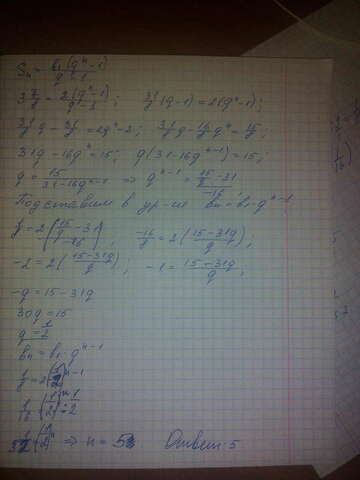 Sn = b1(q^n-1)/q-1
3 7/8 = 2(q^n-1)/q-1; 31/8(q-1)=2(q^n-1);
31/8 q - 31/8 = 2q^n-2; 31/8 q - 16/8 q^n = 15/8;
31q-16q^n=15; q(31-16q^n-1)=15;
q = 15/31-16q^n-1 => q^n-1 = 15/q-31/-16;
Подставим в ур-ие bn=b1·q^n-1
1/8=2(15/q-31/-16); -16/8=2(15-31q/q);
-2=2(15-31q/q); -1=(15-31q/q);
-q=15-31q
30q=15
q=1/2
bn=b1·q^n-1
1/8=2(1/2)^n-1
1/16=(1/2)^n:1/2
1/32=(1/2)^n => n=5 Ответ:5